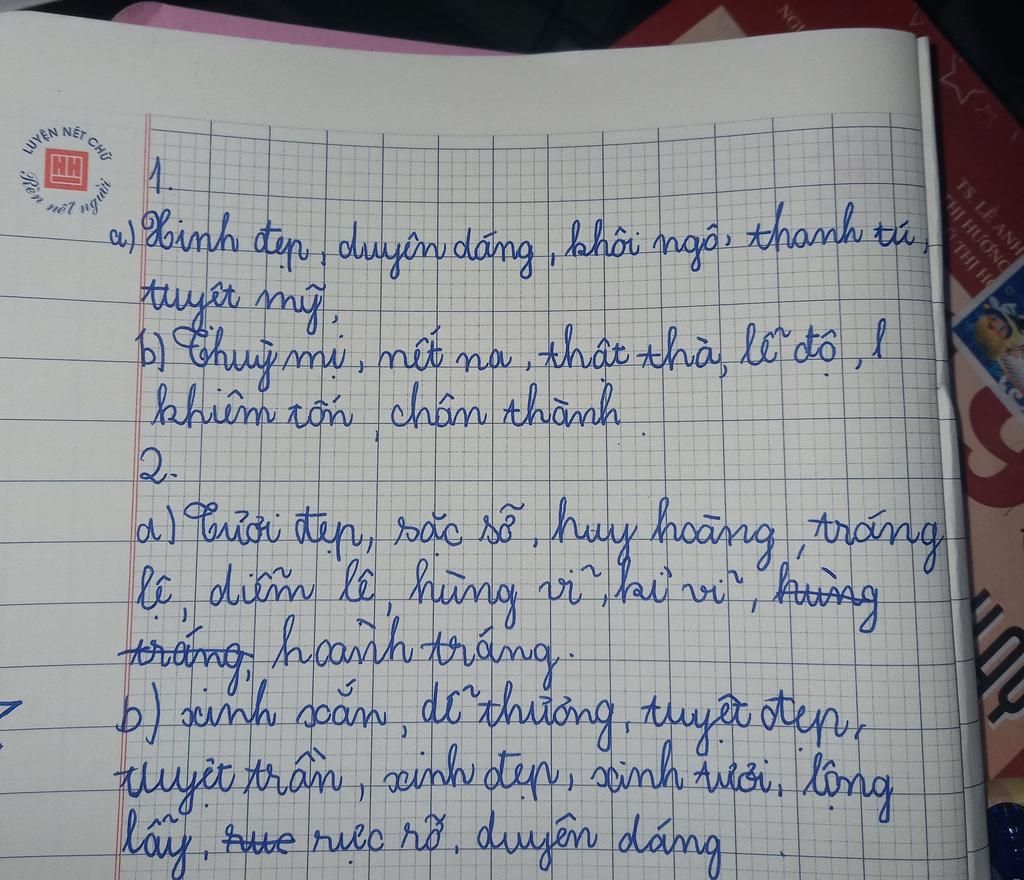 LUYỆN NÉT CHỮ
Rèn nét người
1.
a) Xinh đẹp, duyên dáng, khôi ngô, thanh tú,
tuyệt mỹ,
b) Thuỳ mị, nết na, thật thà, lễ độ, l
khiêm tốn, chân thành.
2.
a) Tươi đẹp, sặc sỡ, huy hoàng, tráng
lệ, diễm lệ, hùng vĩ, kì vĩ, hùng
tráng, hoành tráng.
b) xinh xắn, dễ thương, tuyệt đẹp,
tuyệt trần, xinh đẹp, xinh tươi, lộng
lẫy, rưc rực rỡ, duyên dáng.
TS. LÊ ANH
THỊ HƯƠNG